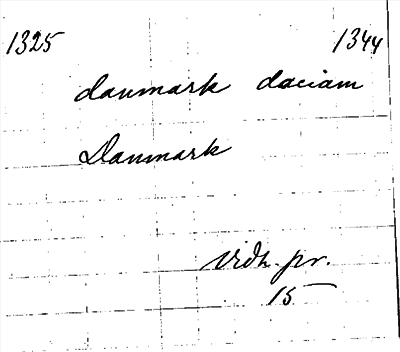 1325 1344
danmark daciam
Danmark
vidh. pr.
15